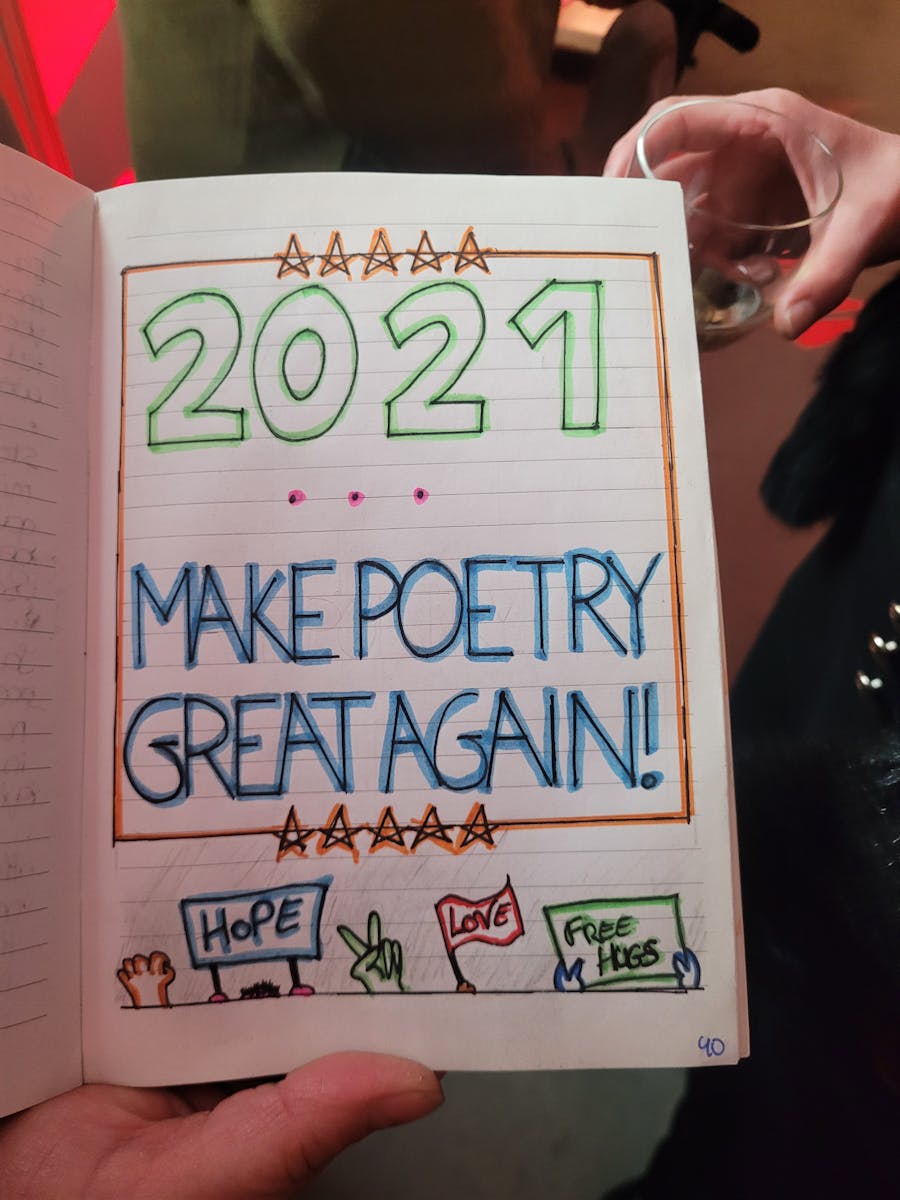 2021
...
MAKE POETRY
GREAT AGAIN!
HOPE
LOVE
FREE
HUGS
90